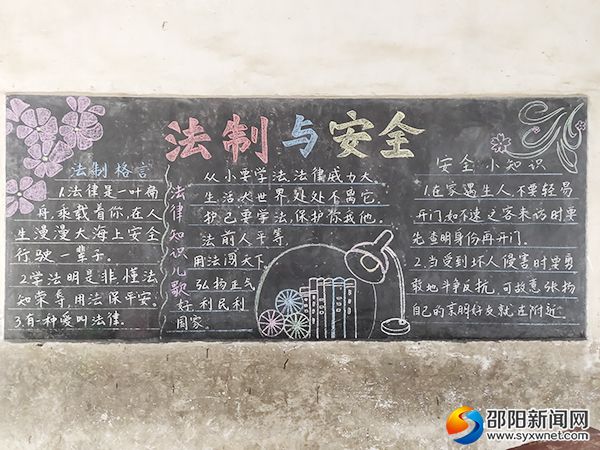 法制与安全
法制格言
1.法律是一叶扁
舟,乘载着你,在人
生漫漫大海上安全
行驶一辈子。
2.学法明是非,懂法
知荣辱,用法保平安。
3.有一种爱叫法律。
法律知识儿歌
从小要学法,法律威力大,
生活大世界,处处不离它,
护己要学法,保护你我他。
法前人平等,
用法闯天下,
弘扬正气
好,利民利
国家。
安全小知识
1.在家遇生人,不要轻易
开门如不速之客来访时要
先查明身份再开门。
2.当受到坏人侵害时要勇
敢地斗争反抗,可故意张扬
自己的亲朋好友就在附近。
邵阳新闻网
www.syxwnet.com